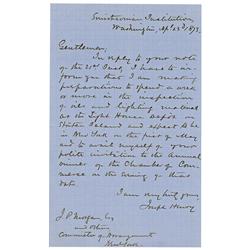 Smithsonian Institution,
Washington, Apl 23d, 1873.
Gentlemen,
In reply to your note
of the 21st Inst, I have to in-
form you that I am making
preparations to spend a week
or more in the inspection
of oils and lighting material
at the Light House Depot on
Staten Island and expect to be
in New York on the first of May and
to avail myself of your
polite invitation to the annual
dinner of the Chamber of Com-
merce in the evening of that
date.
I am very truly yours,
Joseph Henry
J. P. Morgan Esq
and others
Committee of Arrangements
New York